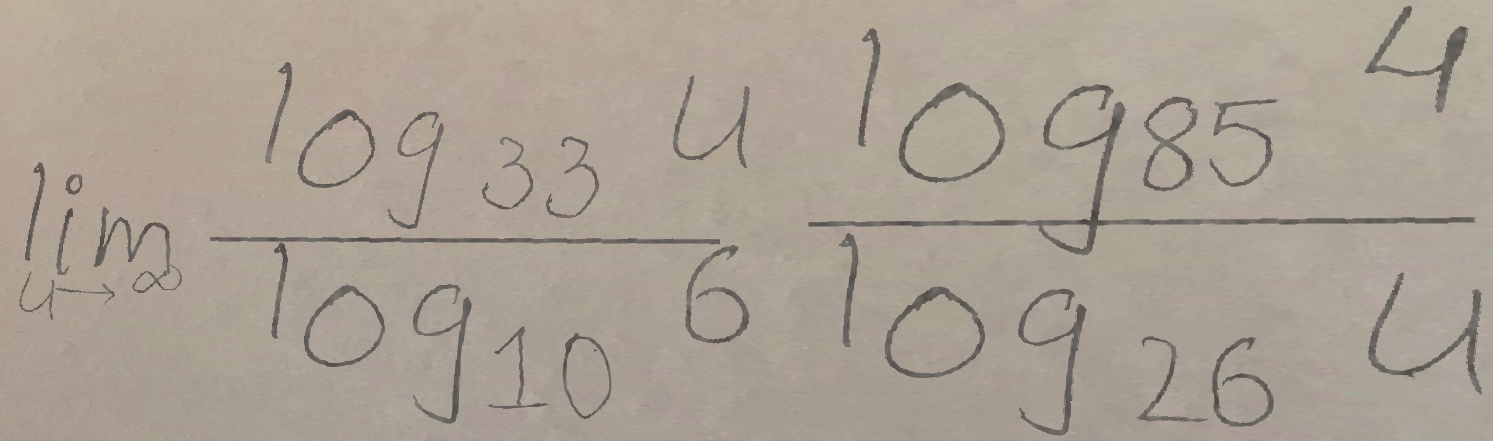 \lim_{u \to \infty} \frac{\log_{33} u}{\log_{10} 6} \frac{\log_{85} 4}{\log_{26} u}